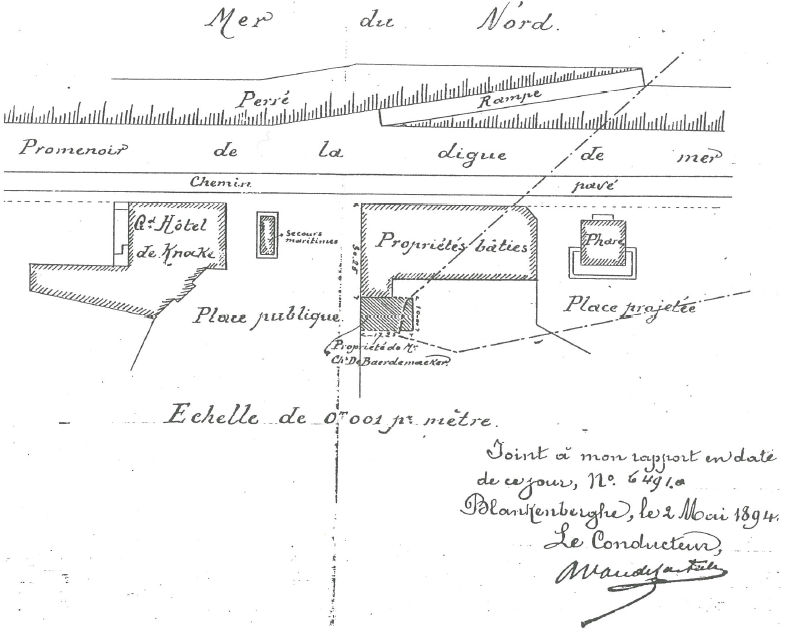 Mer du Nord.
Perré
Rampe
Promenoir de la digue de mer
Chemin pavé
Gd. Hôtel
de Knoke
Secours
maritimes
Propriétés bâties
Phare
Place publique.
Place projetée
Propriété de Mr.
Ch. De Baerdemaeker.
Echelle de 0m001 pr. mètre.
Joint à mon rapport en date
de ce jour, No. 6491.a
Blankenberghe, le 2 Mai 1894.
Le Conducteur,